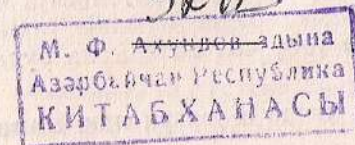 М. Ф. Ахундов адына
Азәрбајҹан Республика
КИТАБХАНАСЫ